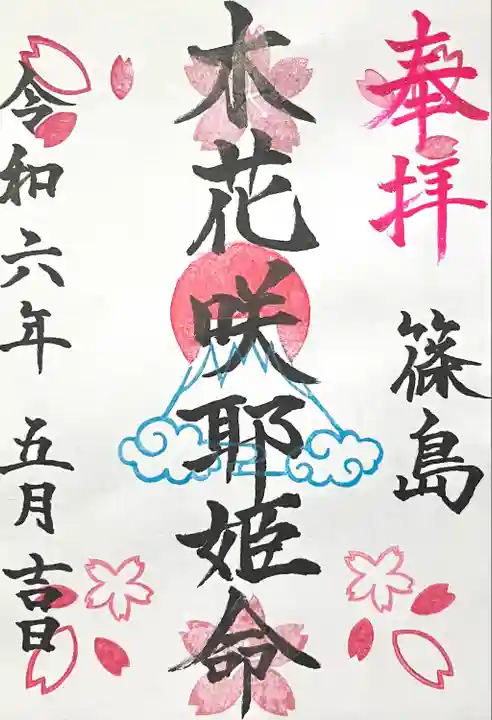 奉拝
篠島
木花咲耶姫命
令和六年 五月吉日